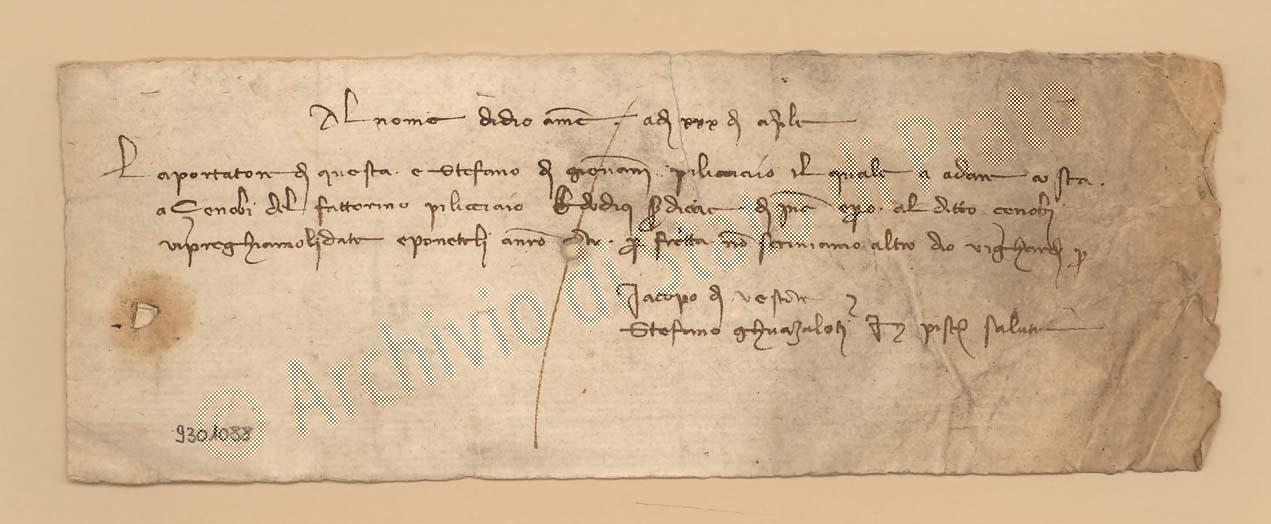 Al nome di dio ame. adi xxx di aprile
L aportatore di questa. e Stefano di giovani pilicciaio il quale a a dare costa.
a Cenobi del fattorino pilicciaio al ditto cenobi
vi preghiamo li date e poneteli a nro per fretta no scriviamo altro dio vi ghardi p
Jacopo di
Stefano ghuazaloti pisa salute
9301088
© Archivio di Stato di Prato